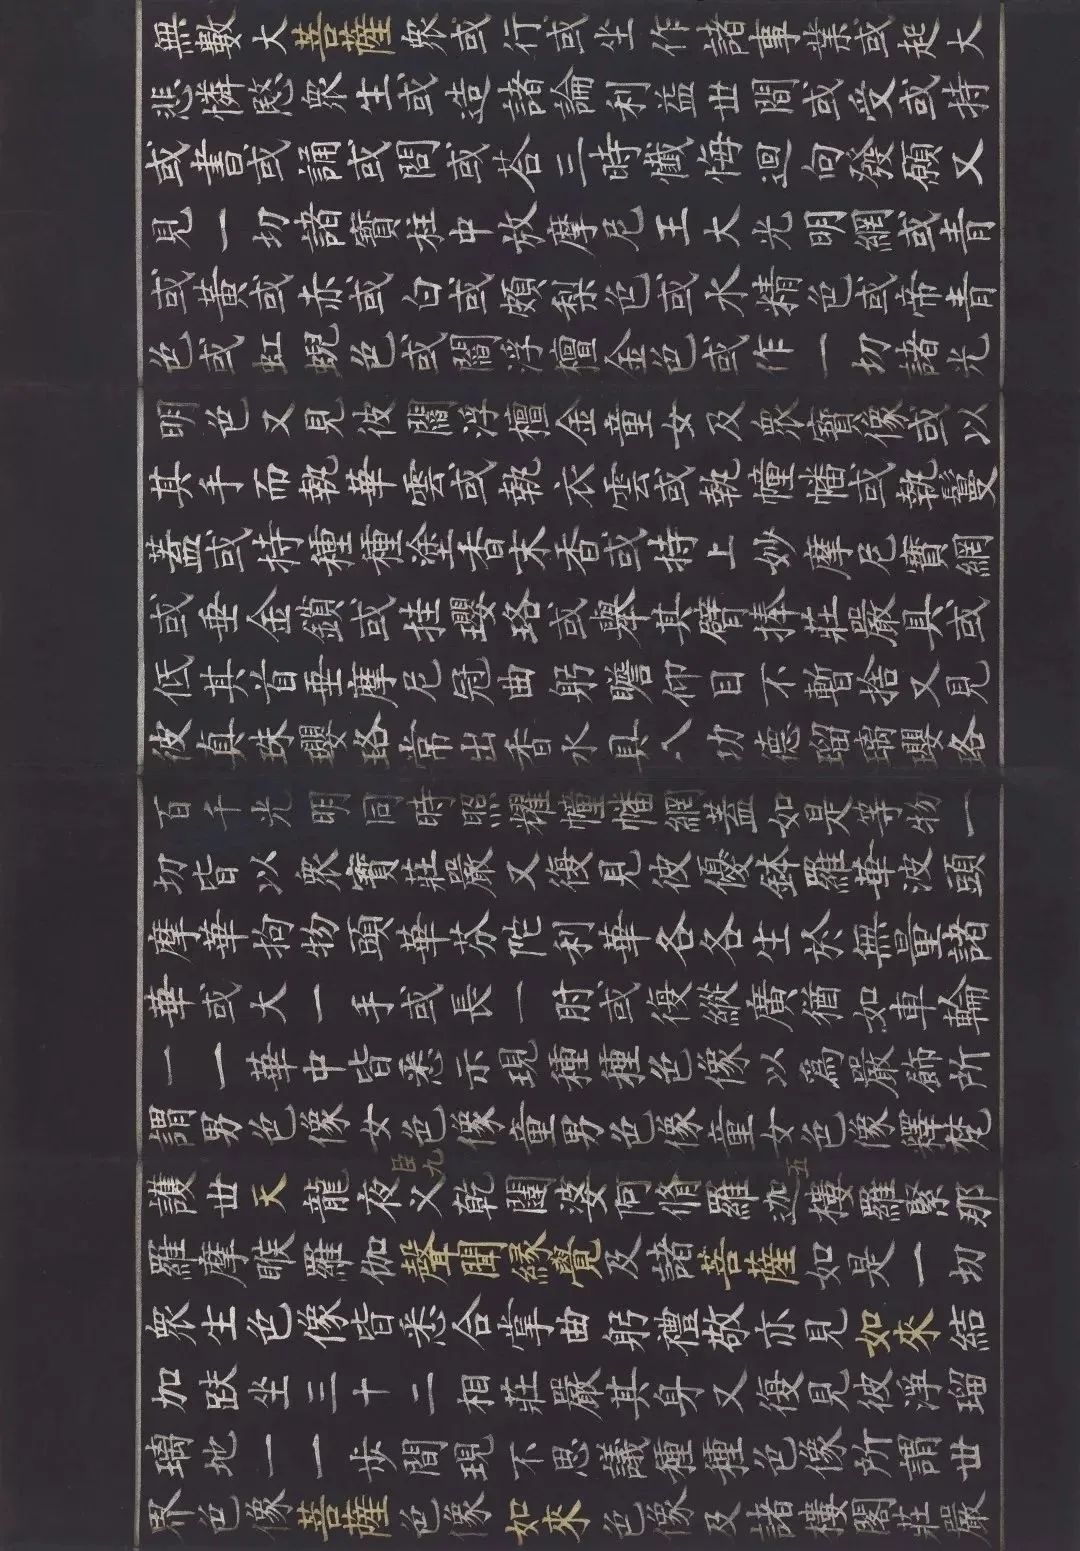 無數大菩薩眾或行或坐作諸事業或起大
悲憐愍眾生或造諸論利益世間或受或持
或書或誦或問或荅三時懺悔迴向發願又
見一切諸寶柱中放摩尼王大光明網或青
或黃或赤或白或頗梨色或水精色或帝青
色或虹蜺色或閻浮檀金色或作一切諸光
明色又見彼閻浮檀金童女及眾寶像或以
其手而執華雲或執衣雲或執幢幡或執鬘
蓋或持種種塗香末香或持上妙摩尼寶網
或垂金鎖或挂瓔珞或舉其臂捧莊嚴具或
低其首垂摩尼冠曲躬瞻仰目不暫捨又見
彼真珠瓔珞常出香水具八功德瑠璃瓔珞
百千光明同時照耀幢幡網蓋如是等物一
切皆以眾寶莊嚴又復見彼優鉢羅華波頭
摩華拘物頭華芬陀利華各各生於無量諸
華或大一手或長一肘或復縱廣猶如車輪
一一華中皆悉示現種種色像以為嚴飾所
謂男色像女色像童男色像童女色像釋梵
臣九 五
護世天龍夜叉乾闥婆阿脩羅迦樓羅緊那
羅摩睺羅伽聲聞緣覺及諸菩薩如是一切
眾生色像皆悉合掌曲躬禮敬亦見如來結
加趺坐三十二相莊嚴其身又復見彼淨瑠
璃地一一步間現不思議種種色像所謂世
界色像菩薩色像如來色像及諸樓閣莊嚴